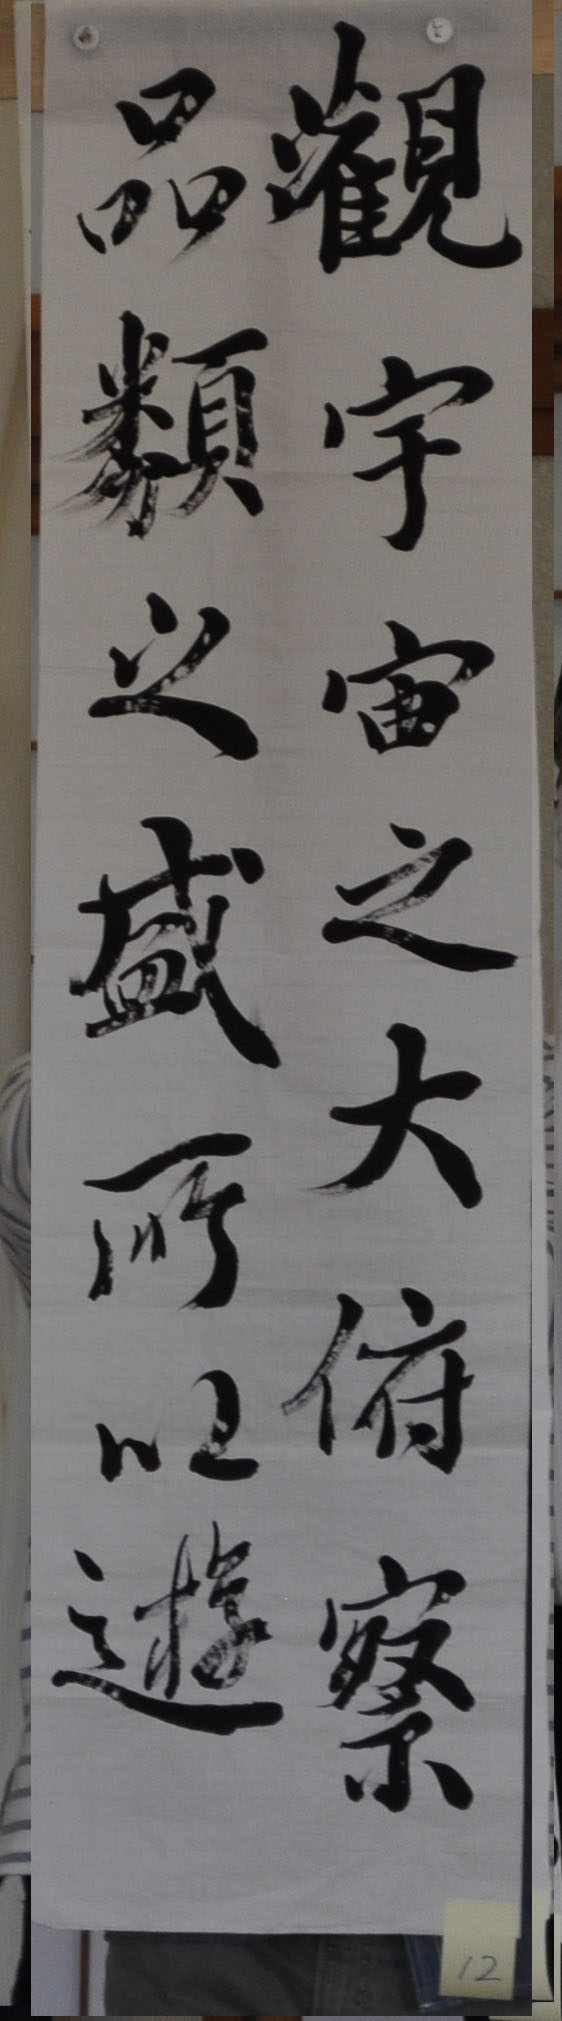 觀宇宙之大俯察
品類之盛所以遊
12